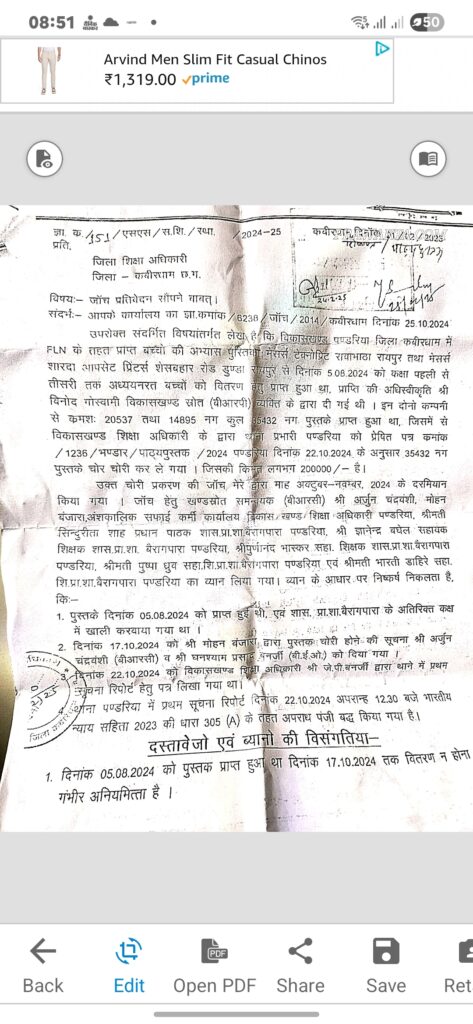 08:51
50
Arvind Men Slim Fit Casual Chinos
₹1,319.00 prime
ज्ञा. क./151/एसएस/स.शि./स्था. /2024-25 कबीरधाम दिनांक
प्रति,
जिला शिक्षा अधिकारी
जिला – कबीरधाम छ.ग.
विषयः– जाँच प्रतिवेदन सौंपने बाबत्।
संदर्भः– आपके कार्यालय का ज्ञा.कमांक/6238/जाँच/2014/कबीरधाम दिनांक 25.10.2024
उपरोक्त संदर्भित विषयांतर्गत लेख है कि विकासखण्ड पण्डरिया जिला कबीरधाम में
FLN के तहत प्राप्त बच्चों की अभ्यास पुस्तिका मेसर्स टेक्नोप्रिंट रावांभाठा रायपुर तथा मेसर्स
शारदा आपसेट प्रिंटर्स शेसबहार रोड डुण्डा रायपुर से दिनांक 5.08.2024 को कक्षा पहली से
तीसरी तक अध्ययनरत बच्चों को वितरण हेतु प्राप्त हुआ था, प्राप्ति की अधिस्वीकृति श्री
विनोद गोस्वामी विकासखण्ड स्रोत (बीआरपी) व्यक्ति के द्वारा दी गई थी। इन दोनो कम्पनी
से कमशः 20537 तथा 14895 नग कुल 35432 नग पुस्तके प्राप्त हुआ था, जिसमें से
विकासखण्ड शिक्षा अधिकारी के द्वारा थाना प्रभारी पण्डरिया को प्रेषित पत्र कमांक
/1236/भण्डार/पाठ्यपुस्तक /2024 पण्डरिया दिनांक 22.10.2024 के अनुसार 35432 नग
पुस्तके चोर चोरी कर ले गया। जिसकी किमत लगभग 200000/– है।
उक्त चोरी प्रकरण की जाँच, मेरे द्वारा माह अक्टुबर–नवम्बर, 2024 के दरमियान
किया गया । जाँच हेतु खण्डस्रोत समन्वयक (बीआरसी) श्री अर्जुन चंद्रवंशी, मोहन
बंजारा,अंशकालिक सफाई कर्मी कार्यालय विकास/खण्ड/शिक्षा अधिकारी पण्डरिया, श्रीमती
सिन्दुरीता शाह प्रधान पाठक शास.प्रा.शा.बैरागपारा पण्डरिया, श्री ज्ञानेन्द्र बघेल सहायक
शिक्षक शास.प्रा.शा. बैरागपारा पण्डरिया, श्रीपुर्णानंद भास्कर सहा. शिक्षक शास.प्रा.शा.बैरागपारा
पण्डरिया, श्रीमती पुष्पा ध्रुव सहा.शि.प्रा.शा बैरागपारा पण्डरिया एवं श्रीमती भारती डाहिरे सहा.
शि.प्रा.शा.बैरागपारा पण्डरिया का ब्यान लिया गया। ब्यान के आधार पर निष्कर्ष निकलता है,
कि:–
1. पुस्तके दिनांक 05.08.2024 को प्राप्त हुई थी, एवं शास. प्रा.शा.बैरागपारा के अतिरिक्त कक्ष
में खाली करवाया गया था ।
2. दिनांक 17.10.2024 को श्री मोहन बंजारा द्वारा पुस्तक चोरी होने की सूचना श्री अर्जुन
चंद्रवंशी (बीआरसी) व श्री घनश्याम प्रसाद बनर्जी (बी.ई.ओ.) को दिया गया ।
3. दिनांक 22.10.2024 को विकासखण्ड शिक्षा अधिकारी श्री जे.पी.बनर्जी द्वारा थाने में प्रथम
सूचना रिपोर्ट हेतु पत्र लिखा गया था।
थाना पण्डरिया में प्रथम सूचना रिपोर्ट दिनांक 22.10.2024 अपरान्ह 12.30 बजे भारतीय
न्याय सहिता 2023 की धारा 305 (A) के तहत अपराध पंजी बद्ध किया गया है।
दस्तावेजो एवं ब्यानो की विसंगतिया–
1. दिनांक 05.08.2024 को पुस्तक प्राप्त हुआ था दिनांक 17.10.2024 तक वितरण न होना
गंभीर अनियमित्ता है ।
Back
Edit
Open PDF
Share
Save
Ret